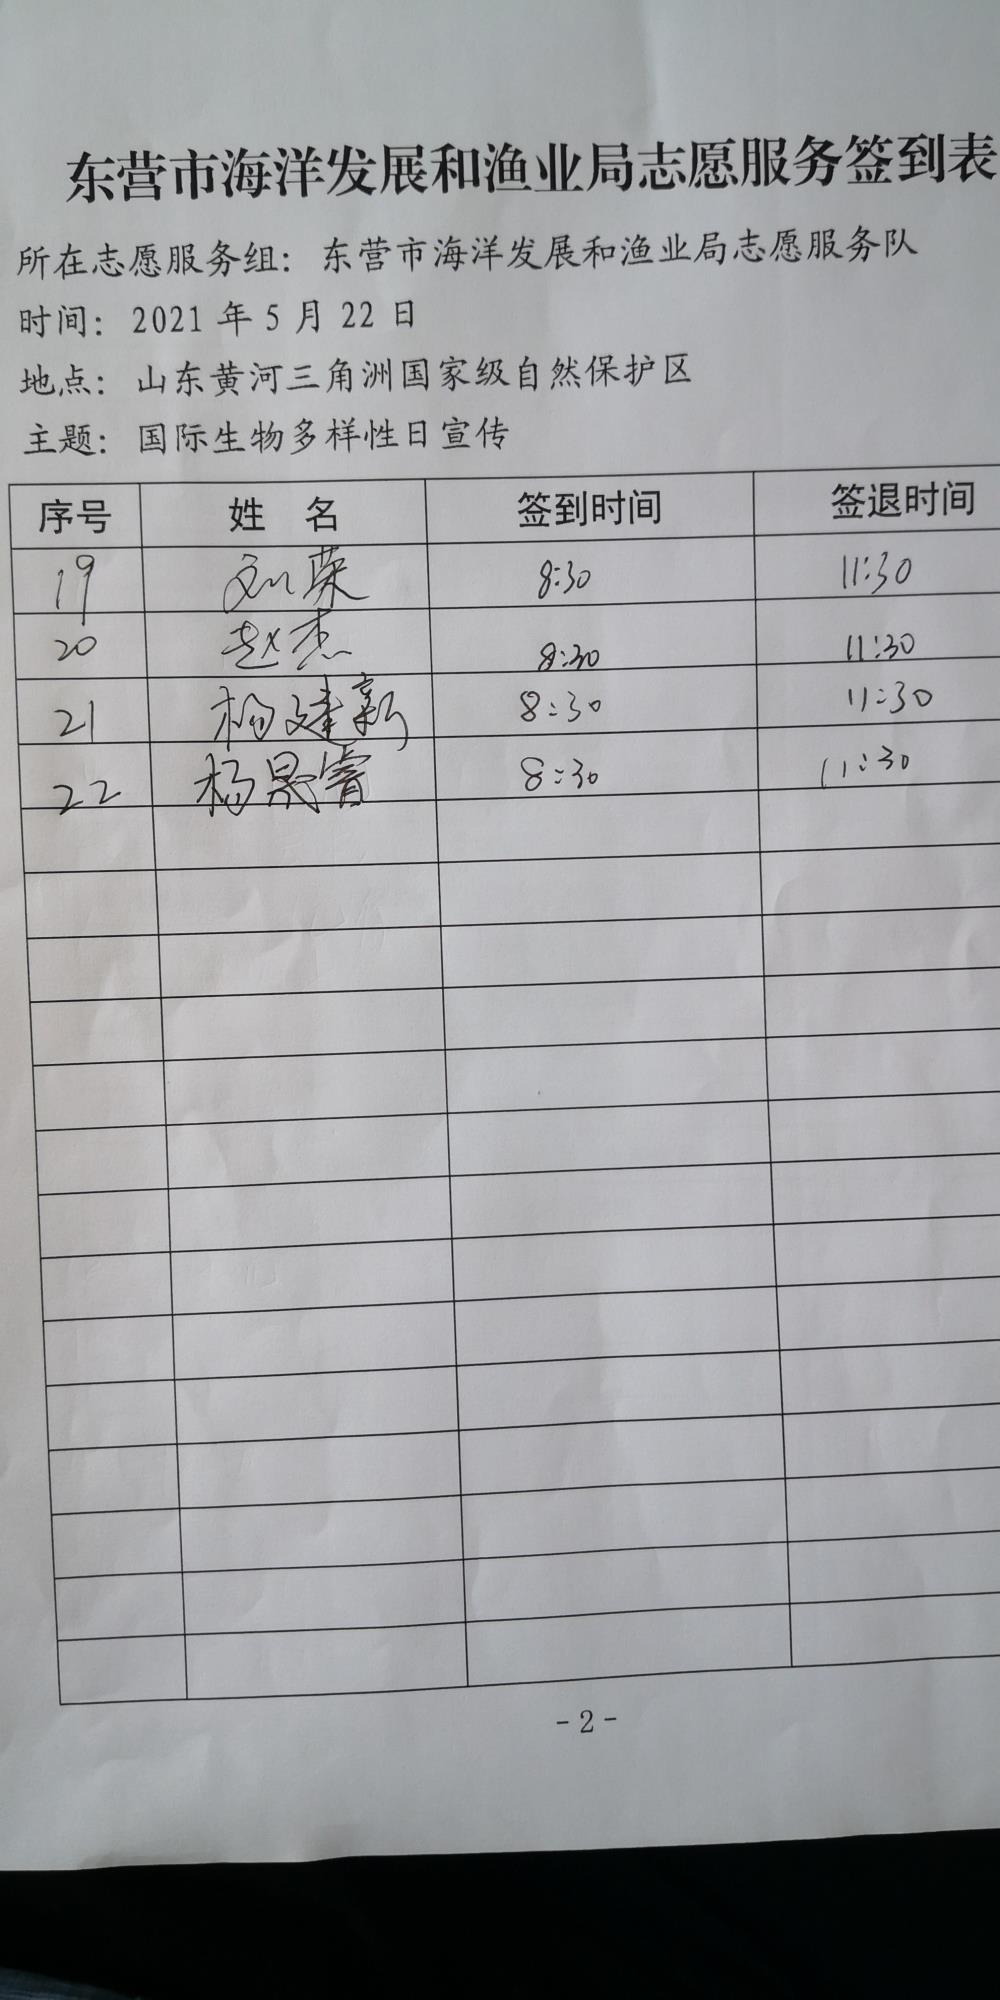 东营市海洋发展和渔业局志愿服务签到表
所在志愿服务组：东营市海洋发展和渔业局志愿服务队
时间：2021年5月22日
地点：山东黄河三角洲国家级自然保护区
主题：国际生物多样性日宣传
序号 姓 名 签到时间 签退时间
19 刘荣 8:30 11:30
20 赵杰 8:30 11:30
21 杨建新 8:30 11:30
22 杨晟睿 8:30 11:30
-2-